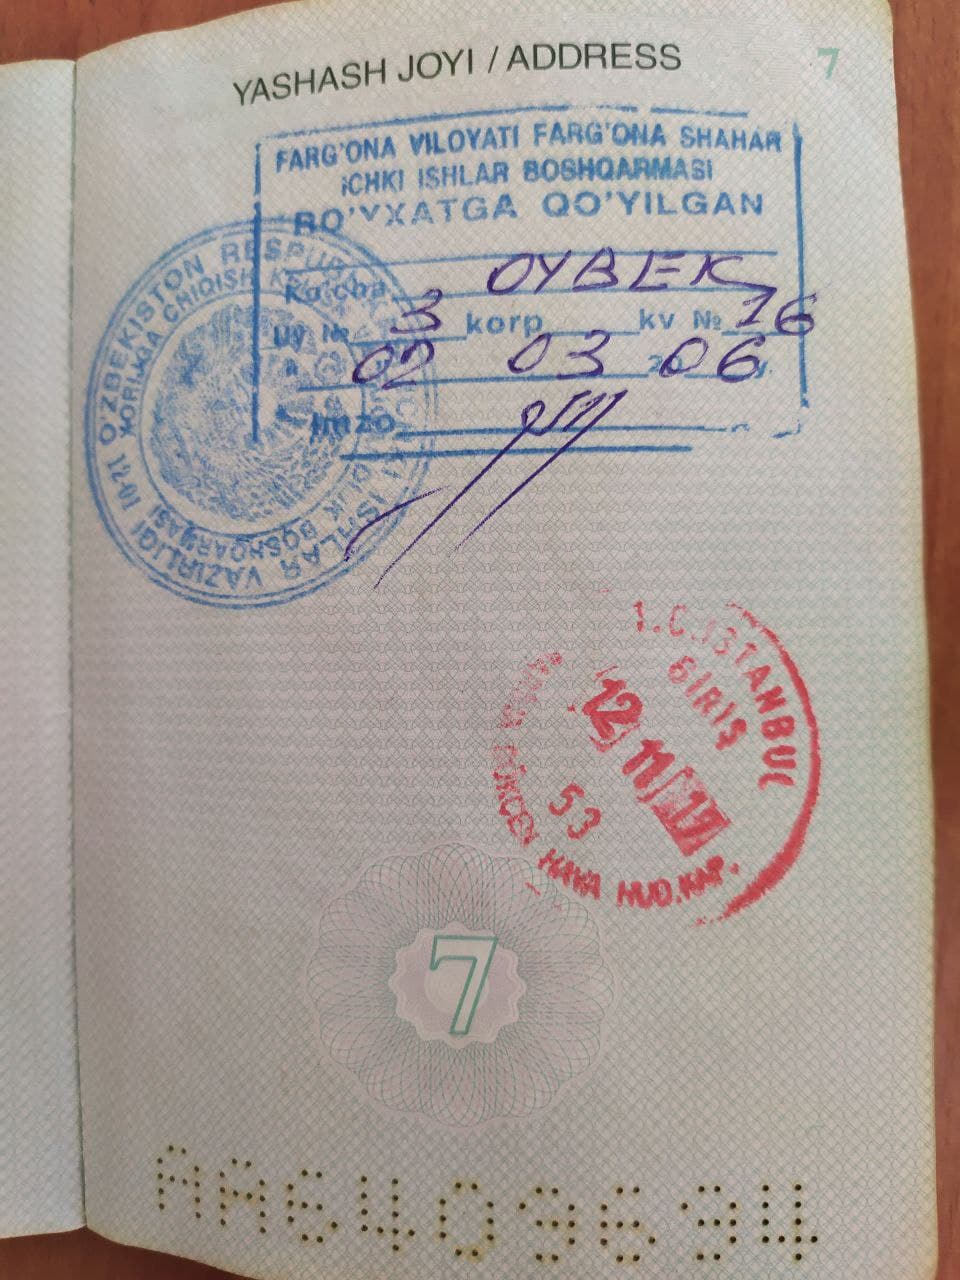 YASHASH JOYI / ADDRESS
7
FARG'ONA VILOYATI FARG'ONA SHAHAR
ICHKI ISHLAR BOSHQARMASI
RO'YXATGA QO'YILGAN
Ko'cha OYBEK
Uy № 3 korp kv № 16
02 03 2006
Imzo
O'ZBEKISTON RESPUBLIKASI ICHKI ISHLAR VAZIRLIGI
BOSHQARMASI
T.C. İSTANBUL
GİRİŞ
12 11 17
53
GÖKÇEN HAVA HUD.KAP.
7
AA6409694